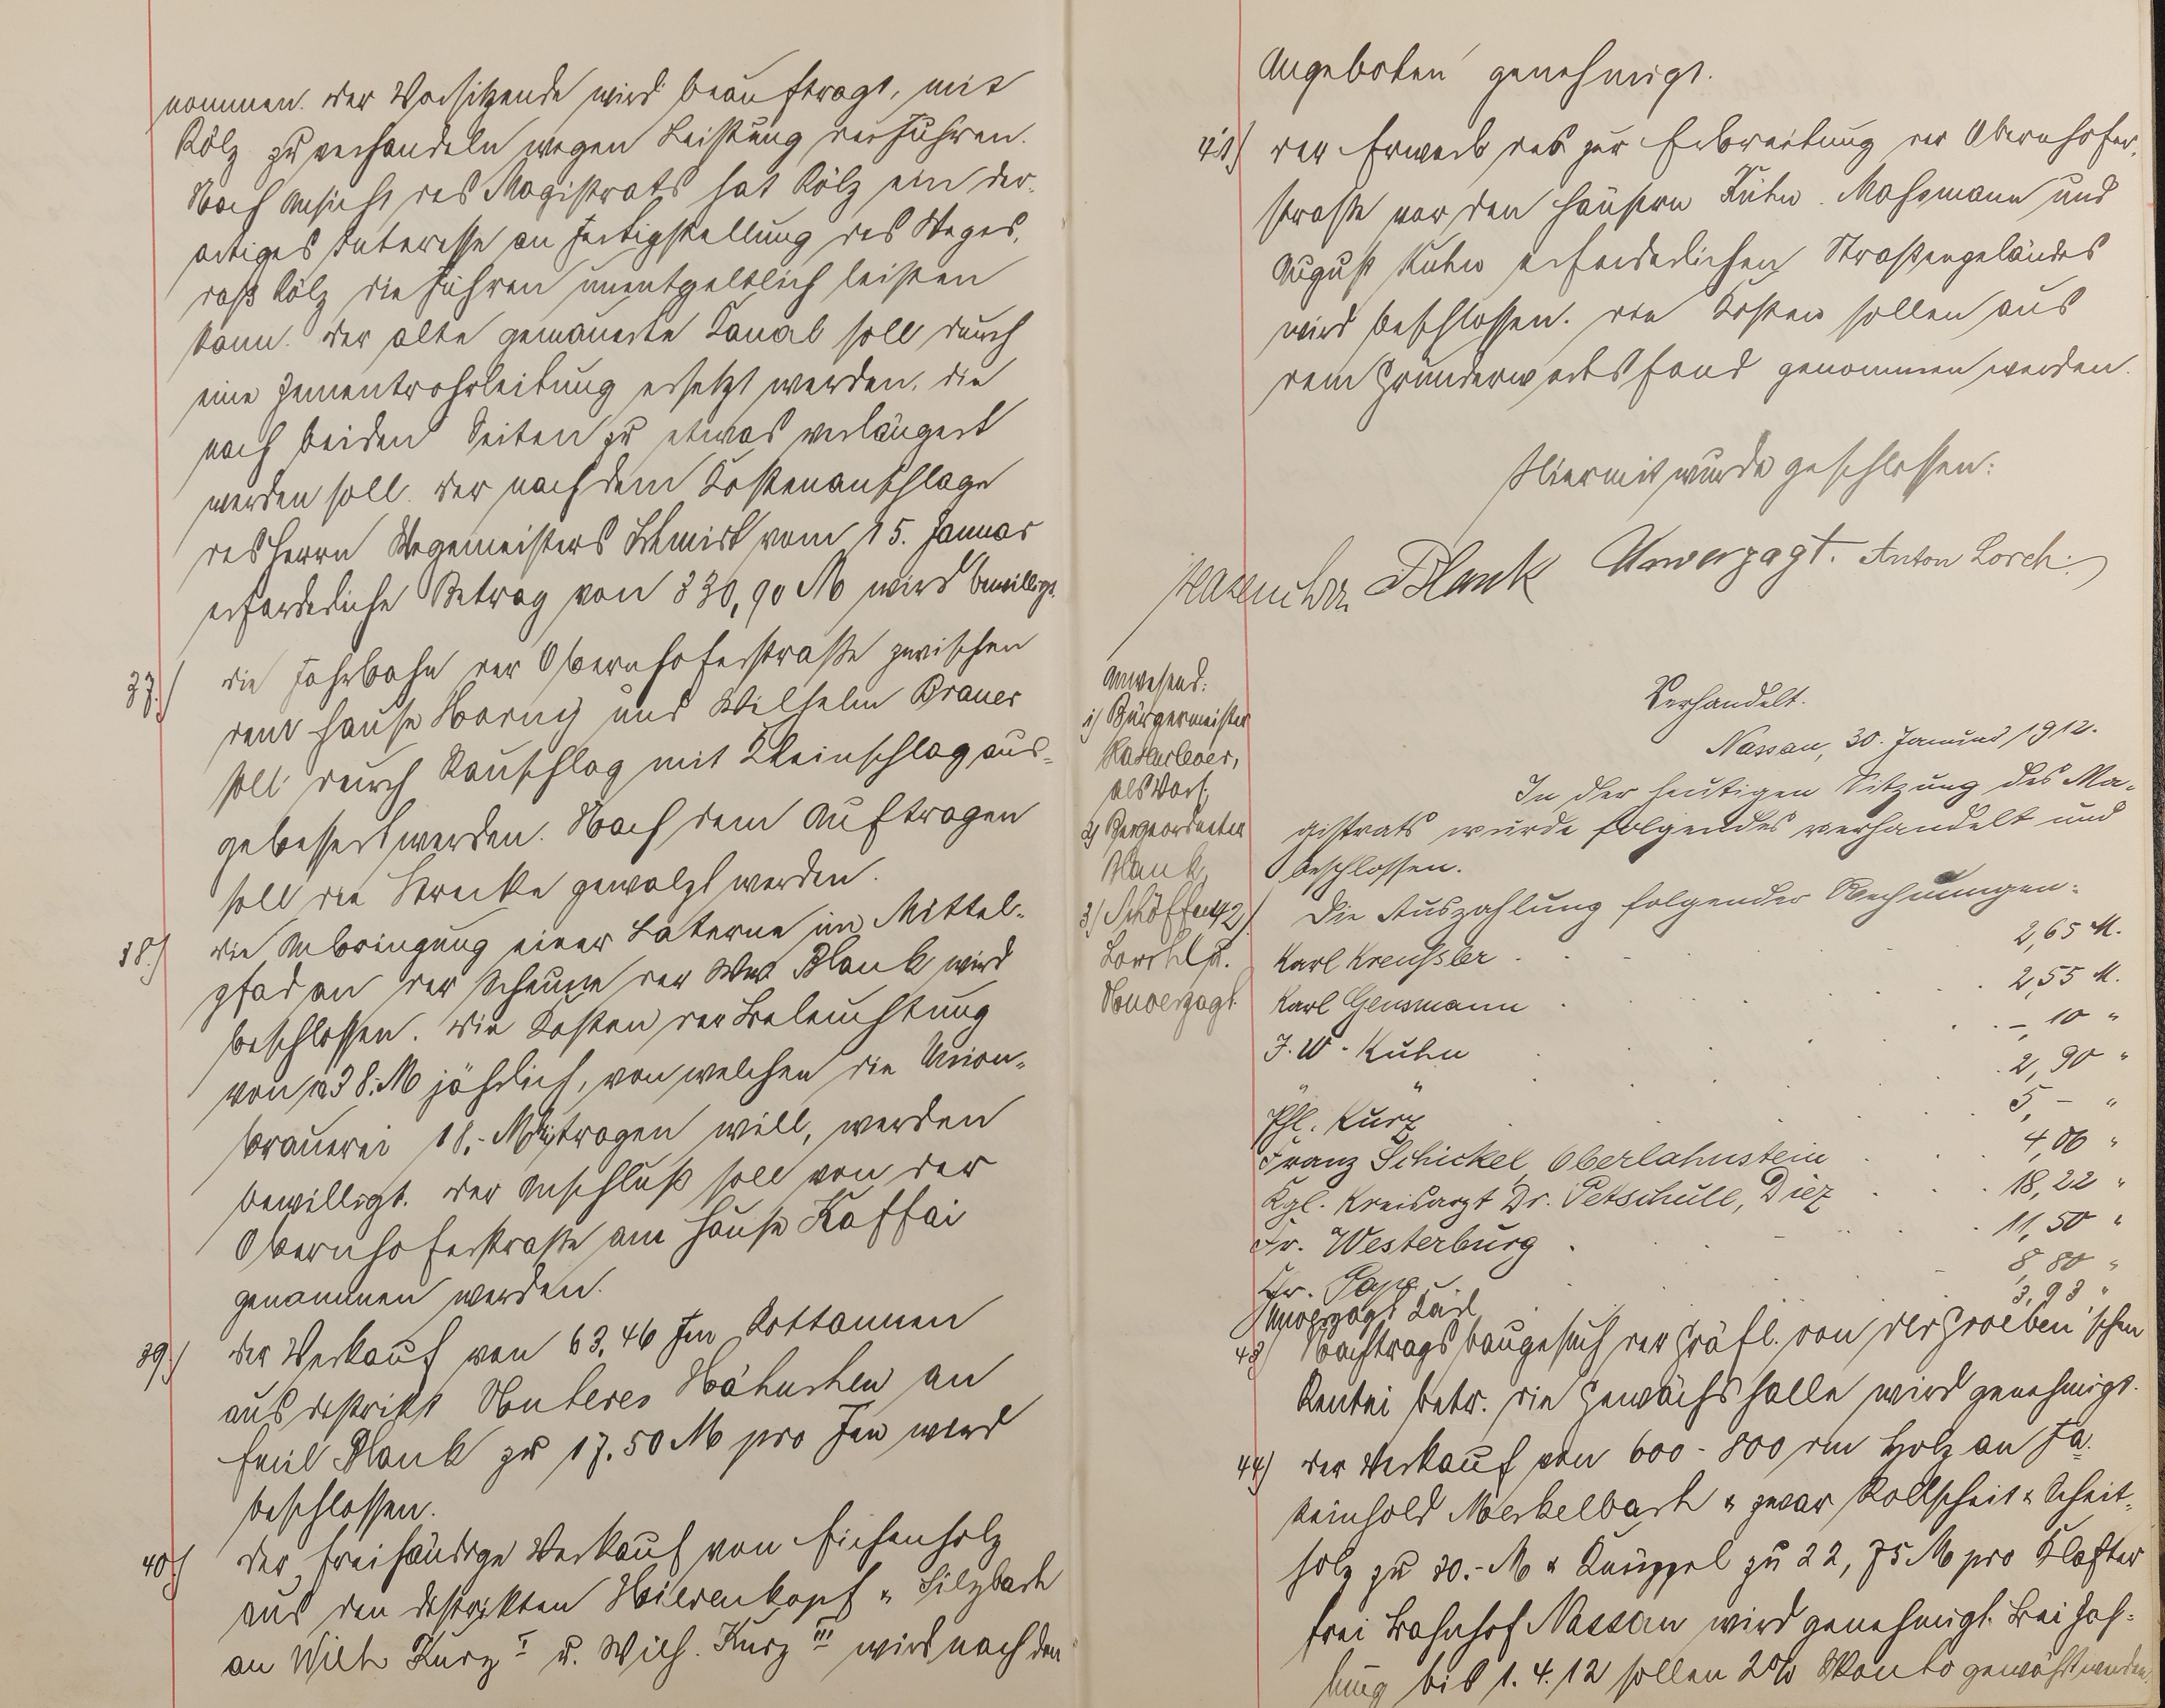 nommen. Der Vorsitzende wird beauftragt, mit
Kölz zu verhandeln wegen Leistung der Fuhren.
Nach Ansicht des Magistrats hat Kölz ein der-
artiges Interesse an Fertigstellung des Weges,
daß Kölz die Fuhren unentgeltlich leisten
kann. Der alte gemauerte Kanal soll durch
eine Zementrohrleitung ersetzt werden, die
nach beiden Seiten zu etwas verlängert
werden soll. Der nach dem Kostenanschlage
des Herrn Wegemeisters Schmidt vom 15. Januar
erforderliche Betrag von 330,90 M wird bewilligt.
37.) Die Fahrbahn der Obernhoferstraße zwischen
dem Hause Hornig und Wilhelm Brauer
soll durch Rauschlag mit Kleinschlag aus-
gebessert werden. Nach dem Auftragen
soll die Strecke gewalzt werden.
38.) Die Anbringung einer Laterne im Mittel-
pfad an der Scheune der Wwe Blank wird
beschlossen. Die Kosten der Beleuchtung
von 38.M jährlich, von welchen die Union-
brauerei 18,- M tragen will, werden
bewilligt. Der Anschluß soll von der
Obernhoferstraße am Hause Kaffai
genommen werden.
39.) Der Verkauf von 63,46 Fm Rottannen
aus Distrikt Unteres Hähnchen an
Emil Blank zu 17.50 M pro Fm wird
beschlossen.
40.) Der freihändige Verkauf von Eichenholz
aus den Distrikten Hierenkopf u. Silzbach
an Wilh Kurz I u. Wilh. Kurz III wird nach den
Angeboten genehmigt.
41.) Der Erwerb des zur Erbreitung der Obernhofer-
straße vor den Häusern Kuhn. Mohsmann und
August Kuhn erforderlichen Straßengeländes
wird beschlossen. Die Kosten sollen aus
dem Grunderwerbsfond genommen werden.
Hiermit wurde geschlossen:
Hasenclever Blank Unverzagt. Anton Lorch.
Anwesend:
1) Bürgermeister
Hasenclever,
als Vors.
2) Beigeordneter
Blank
3) Schöffen
Lorch u.
Unverzagt
Verhandelt.
Nassau, 30. Januar 1912.
In der heutigen Sitzung des Ma-
gistrats wurde folgendes verhandelt und
beschlossen.
42) Die Auszahlung folgender Rechnungen:
Karl Kreußler . . . 2,65 M.
Karl Gensmann . . . 2,55 M.
J. W. Kuhn . . . -,10 "
" " . . . 2,90 "
Phl. Kurz . . . 5,- "
Franz Schickel, Oberlahnstein . . . 4,06 "
Kgl. Kreisarzt Dr. Petschull, Diez . . . 18,22 "
Fr. Westerburg . . . 11,50 "
Chr. Papp . . . 8,80 "
Unverzagt Karl 3,93 "
43) Nachtragsbaugesuch der Gräfl. von der Groeben'schen
Rentei betr. die Gewächshalle wird genehmigt.
44) Der Verkauf von 600-800 rm Holz an Fa.
Reinhold Merkelbach u zwar Rollscheit u Scheit-
holz zu 30.-M u Knüppel zu 22,75 M pro Klafter
frei Bahnhof Nassau wird genehmigt. Bei Zah-
lung bis 1.4.12 sollen 2% Skonto gewährt werden.